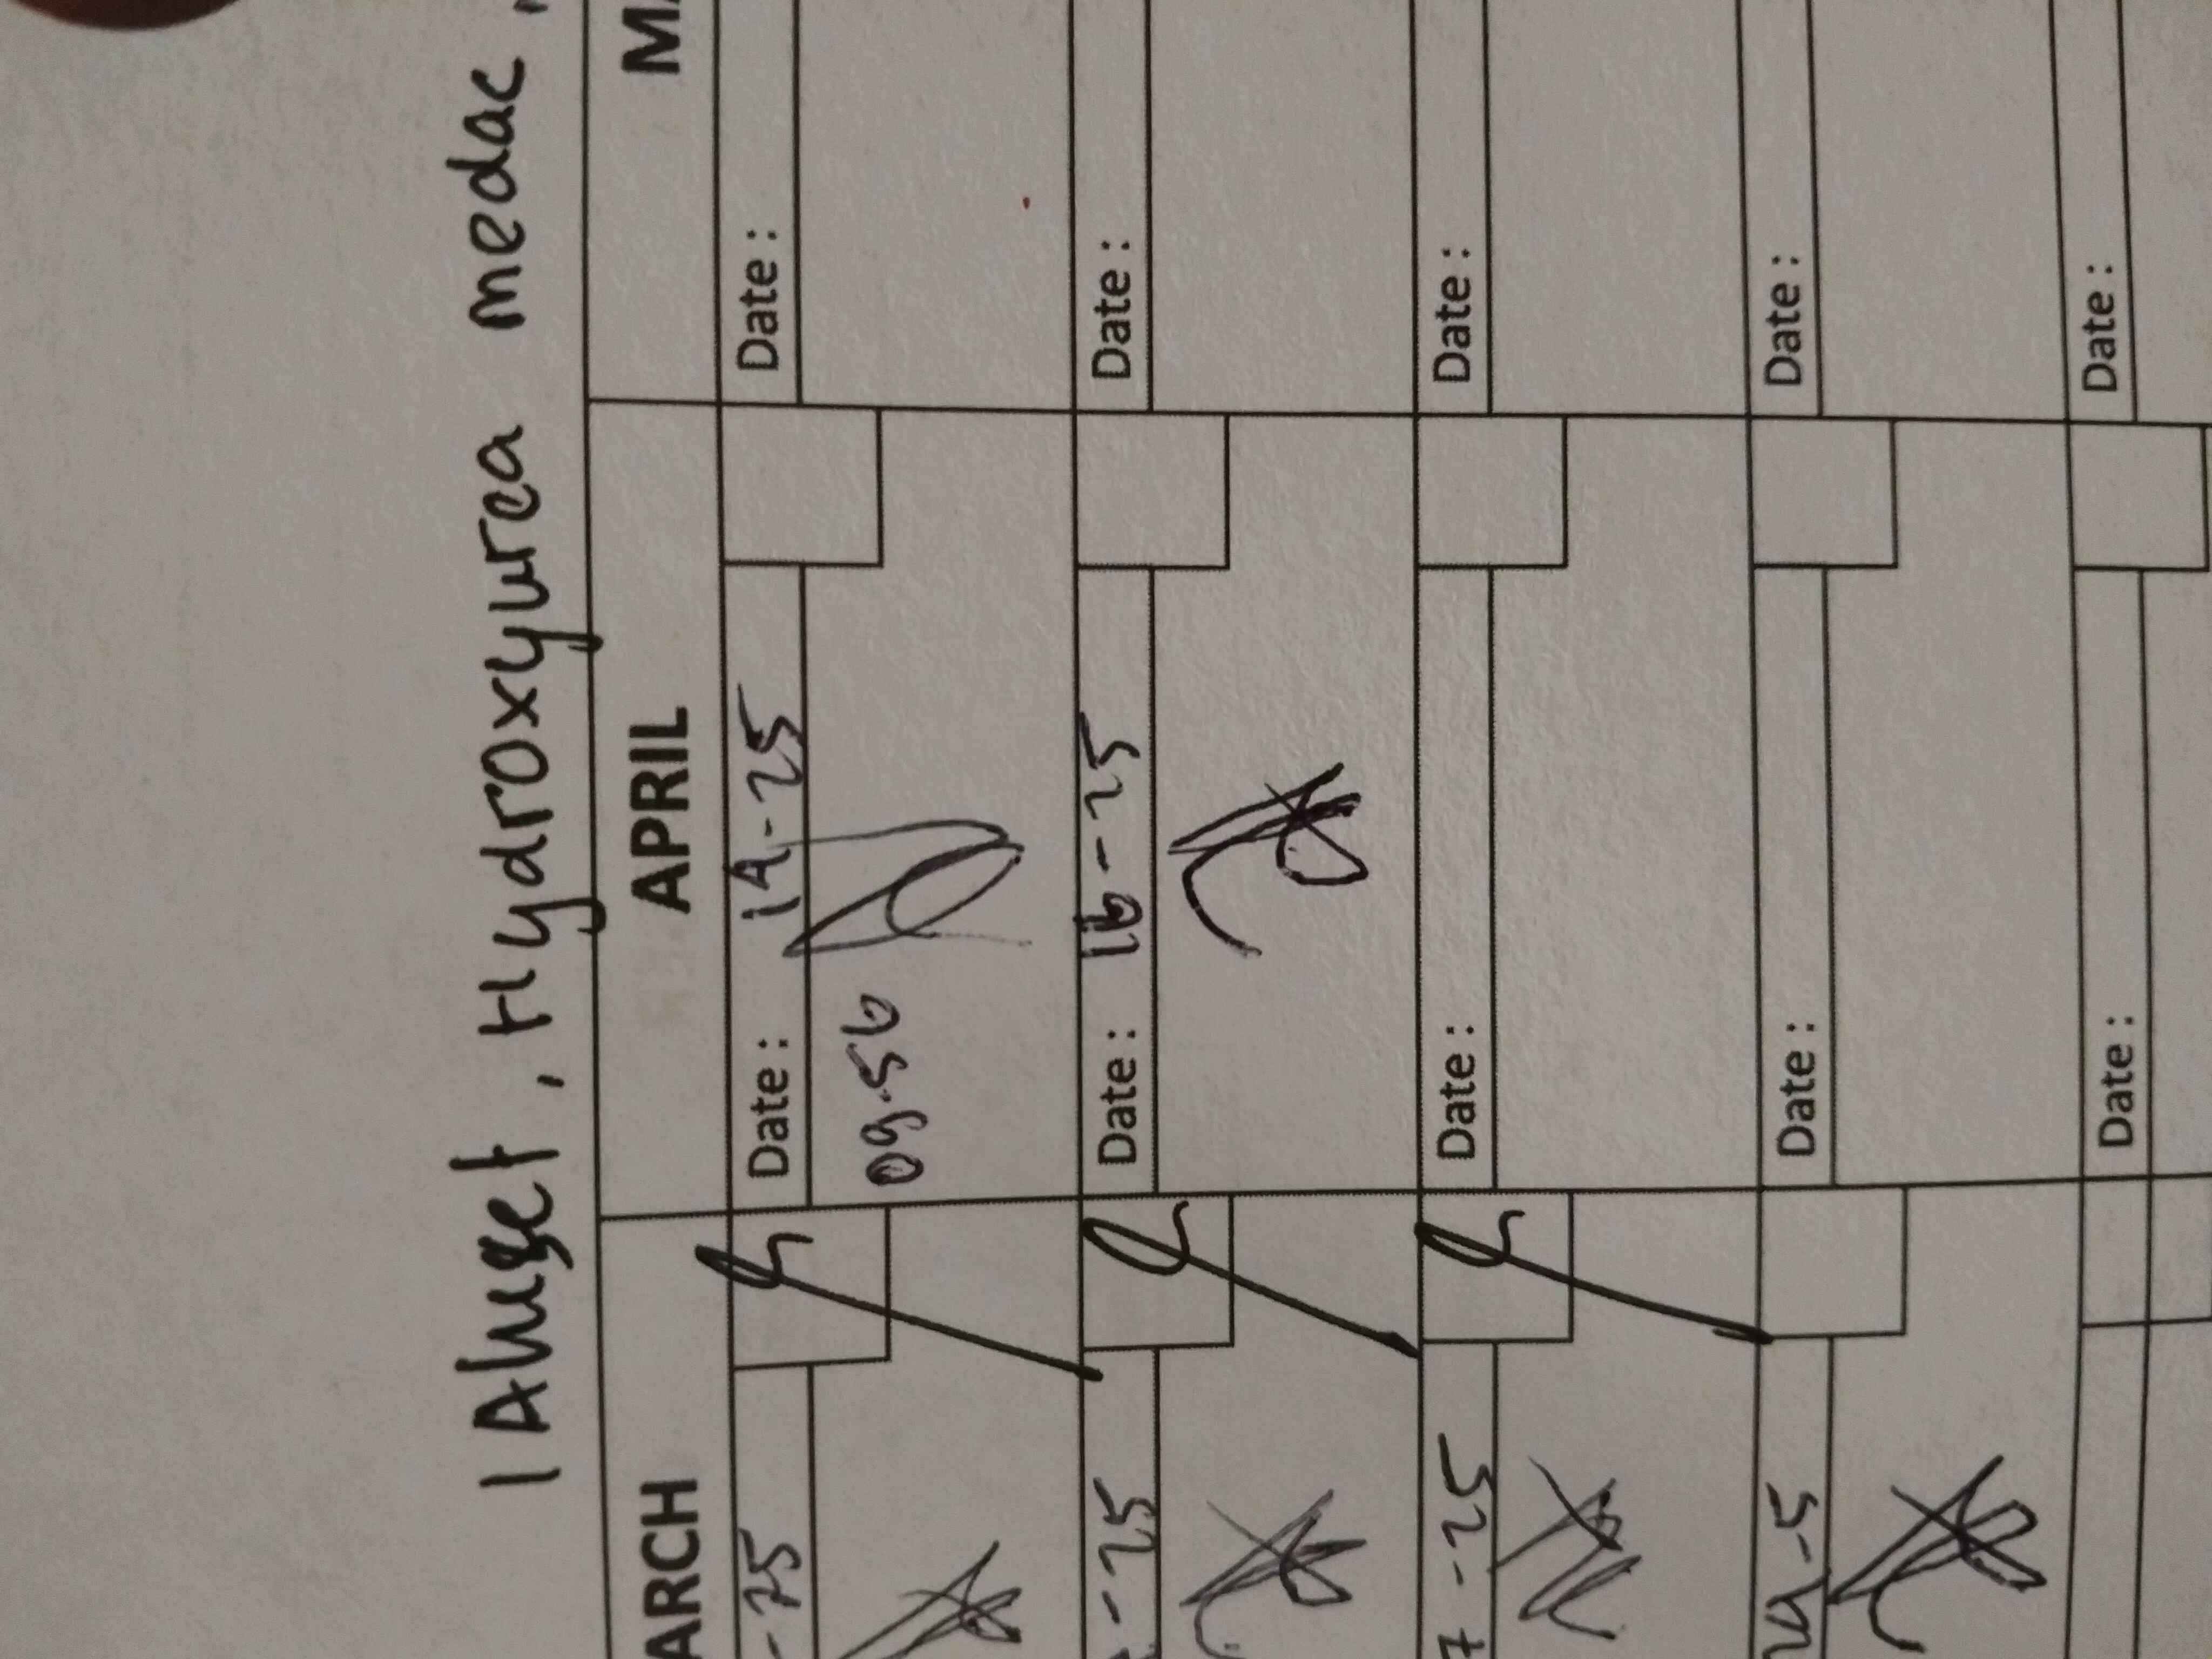 Hydroxyurea medac
ARCH APRIL
-25 Date: 19-25 Date:
09.56
-25 Date: 16-25 Date:
7-25 Date: Date:
-5 Date: Date:
Date: Date: